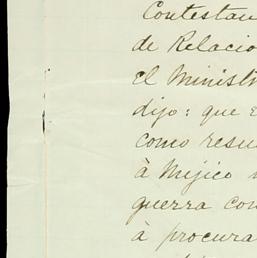 Contestan
de Relacio
el Minist
dijo: que e
como resu
à Mejico
guerra con
à procura